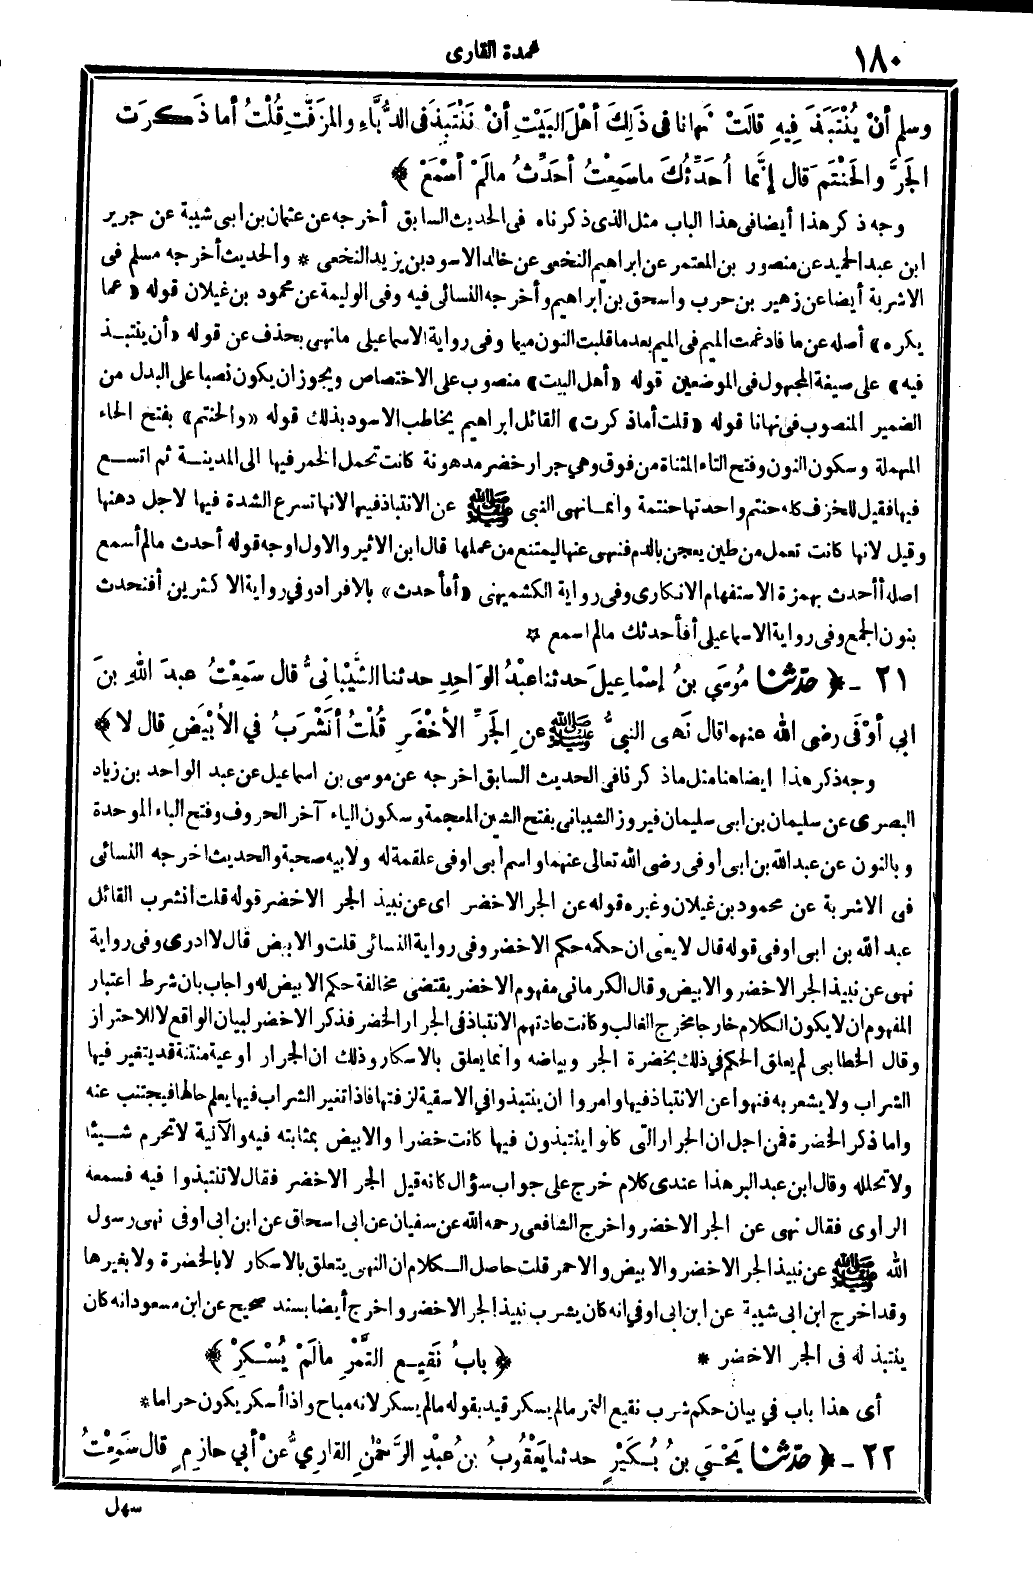 ١٨٠
عمدة القارى
وسلم أنْ يُنْتَبَذَ فِيهِ قالَتْ نَهانا في ذَلِكَ أهْلَ البَيْتِ أنْ نَنْتَبِذَ في الدُّبَّاءِ والمزَفَّتِ قُلْتُ أما ذَكَرَت
الجَرَّ والحَنْتَمَ قال إنَّما أُحَدِّثُكَ ماسَمِعْتُ أحَدِّثُ مالَمْ أسْمَعْ ﴾
وجه ذكر هذا أيضا فى هذا الباب مثل الذى ذكرناه فى الحديث السابق أخرجه عن عثمان بن ابى شيبة عن جرير
ابن عبد الحميد عن منصور بن المعتمر عن ابراهيم النخعى عن خاله الاسود بن يزيد النخعى * والحديث أخرجه مسلم فى
الاشربة أيضا عن زهير بن حرب واسحق بن ابراهيم وأخرجه النسائى فيه وفى الوليمة عن محمود بن غيلان قوله «عما
يكره» أصله عن ما فادغمت الميم فى الميم بعد ما قلبت النون ميما وفى رواية الاسماعيلى مانهى بحذف عن قوله «أن ينتبذ
فيه» على صيغة المجهول فى الموضعين قوله «أهل البيت» منصوب على الاختصاص ويجوز ان يكون نصبا على البدل من
الضمير المنصوب فى نهانا قوله «قلت أماذكرت» القائل ابراهيم يخاطب الاسود بذلك قوله «والحنتم» بفتح الحاء
المهملة وسكون النون وفتح التاء المثناة من فوق وهي جرار خضر مدهونة كانت تحمل الخمر فيها الى المدينة ثم اتسع
فيها فقيل للخزف كله حنتم واحدتها حنتمة وانما نهى النبى ﷺ عن الانتباذ فيها لانها تسرع الشدة فيها لاجل دهنها
وقيل لانها كانت تعمل من طين يعجن بالدم فنهى عنها ليمتنع من عملها قال ابن الاثير والاول اوجه قوله أحدث مالم أسمع
اصله أأحدث بهمزة الاستفهام الانكارى وفى رواية الكشميهنى «أفأحدث» بالافراد وفي رواية الاكثرين أفنحدث
بنون الجمع وفى رواية الاسماعيلى أفأحدثك مالم اسمع ☆
٢١ - ﴿ حدثنا مُوسَي بنُ إسْماعِيلَ حدثنا عبْدُ الوَاحِدِ حدثنا الشَّيْبانِىُّ قال سَمِعْتُ عبدَ اللهِ بنَ
ابي أوْفَى رضى الله عنهما قال نَهَى النبيُّ ﷺ عنِ الجَرِّ الأخْضَرِ قُلْتُ أنَشْرَبُ في الأبْيَضِ قال لا ﴾
وجه ذكر هذا ايضا هنا مثل ماذكرنا فى الحديث السابق اخرجه عن موسى بن اسماعيل عن عبد الواحد بن زياد
البصرى عن سليمان بن ابى سليمان فيروز الشيبانى بفتح الشين المعجمة وسكون الياء آخر الحروف وفتح الباء الموحدة
وبالنون عن عبد الله بن ابى أوفى رضى الله تعالى عنهما واسم أبى اوفى علقمة له ولابيه صحبة والحديث اخرجه النسائى
فى الاشربة عن محمود بن غيلان وغيره قوله عن الجر الاخضر اى عن نبيذ الجر الاخضر قوله قلت انشرب القائل
عبد الله بن ابى اوفى قوله قال لا يعنى ان حكمه حكم الاخضر وفى رواية النسائى قلت والابيض قال لا ادرى وفى رواية
نهى عن نبيذ الجر الاخضر والابيض وقال الكرمانى مفهوم الاخضر يقتضى مخالفة حكم الابيض له واجاب بان شرط اعتبار
المفهوم ان لايكون الكلام خارجا مخرج الغالب وكانت عادتهم الانتباذ فى الجرار الخضر فذكر الاخضر لبيان الواقع لا للاحتراز
وقال الخطابى لم يعلق الحكم في ذلك بخضرة الجر وبياضه وانما يعلق بالاسكار وذلك ان الجرار اوعية منتنة قد يتغير فيها
الشراب ولا يشعر به فنهوا عن الانتباذ فيها وامروا ان ينتبذوا في الاسقية لرقتها فاذا تغير الشراب فيها يعلم حالها فيجتنب عنه
واما ذكر الخضرة فمن اجل ان الجرار التى كانوا ينتبذون فيها كانت خضرا والابيض بمثابته فيه والآنية لا تحرم شيئا
ولا تحلله وقال ابن عبد البر هذا عندى كلام خرج على جواب سؤال كانه قيل الجر الاخضر فقال لا تنتبذوا فيه فسمعه
الراوى فقال نهى عن الجر الاخضر واخرج الشافعى رحمه الله عن سفيان عن ابى اسحاق عن ابن ابى أوفى نهى رسول
الله ﷺ عن نبيذ الجر الاخضر والابيض والاحمر قلت حاصل الكلام ان النهى يتعلق بالاسكار لا بالخضرة ولا بغيرها
وقد اخرج ابن ابى شيبة عن ابن ابى اوفي انه كان يشرب نبيذ الجر الاخضر واخرج أيضا بسند صحيح عن ابن مسعود انه كان
ينتبذ له فى الجر الاخضر *
﴿ بابُ نَقِيعِ التَّمْرِ مالَمْ يُسْكِرْ ﴾
أى هذا باب في بيان حكم شرب نقيع التمر مالم يسكر قيد بقوله مالم يسكر لانه مباح واذا أسكر يكون حراما *
٢٢ - ﴿ حدثنا يَحْيَي بنُ بُكَيْرٍ حدثنا يَعْقُوبُ بنُ عبْدِ الرَّحْمٰنِ القارِيُّ عنْ أبي حازِمٍ قال سَمِعْتُ
سهل